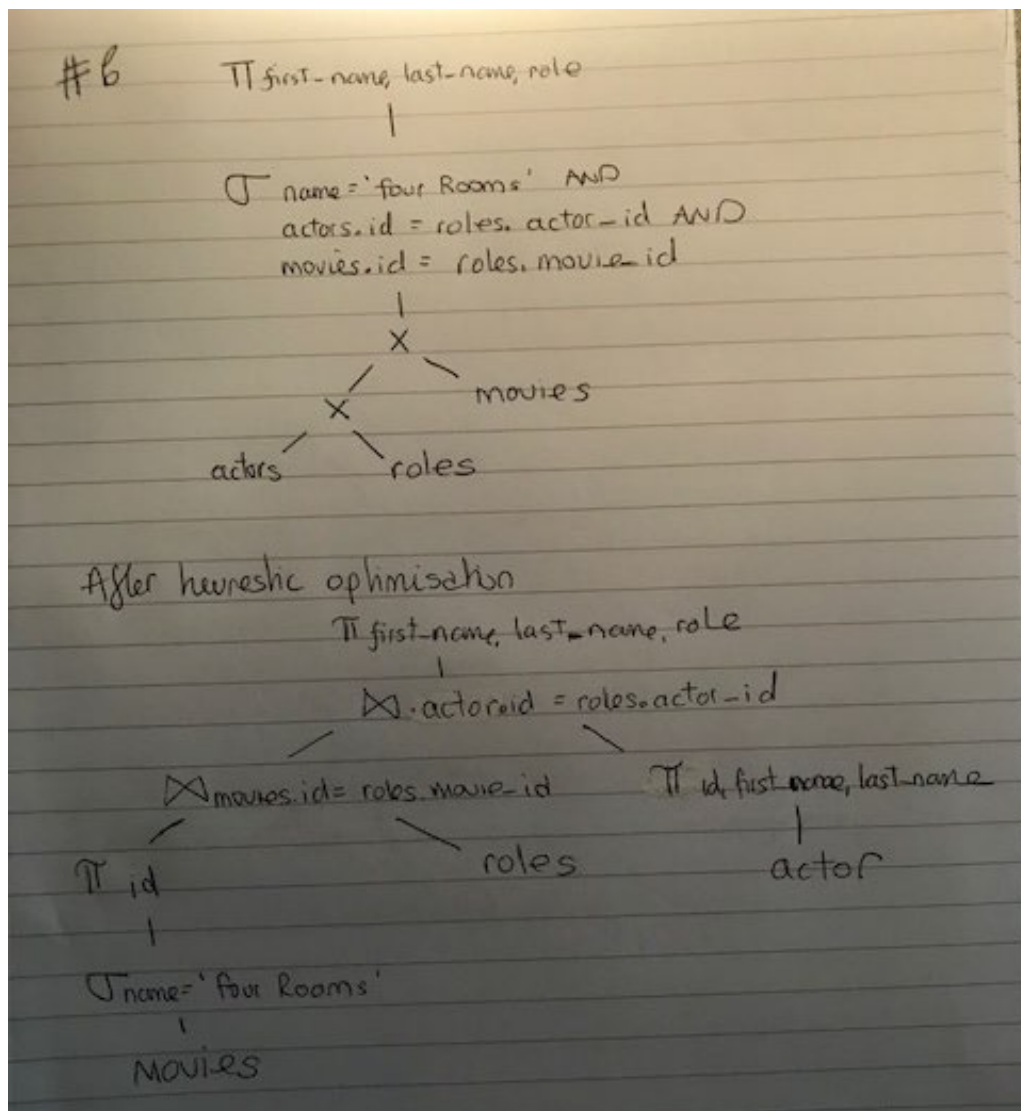 #6 π first_name, last_name, role
|
σ name='four Rooms' AND
actors.id = roles.actor_id AND
movies.id = roles.movie_id
|
X
X movies
actors roles
After heurestic optimisation
π first_name, last_name, role
|
⋈.actor.id = roles.actor_id
⋈ movies.id= roles.movie_id π id, first_name, last_name
|
π id roles actor
|
σ name='four Rooms'
|
Movies